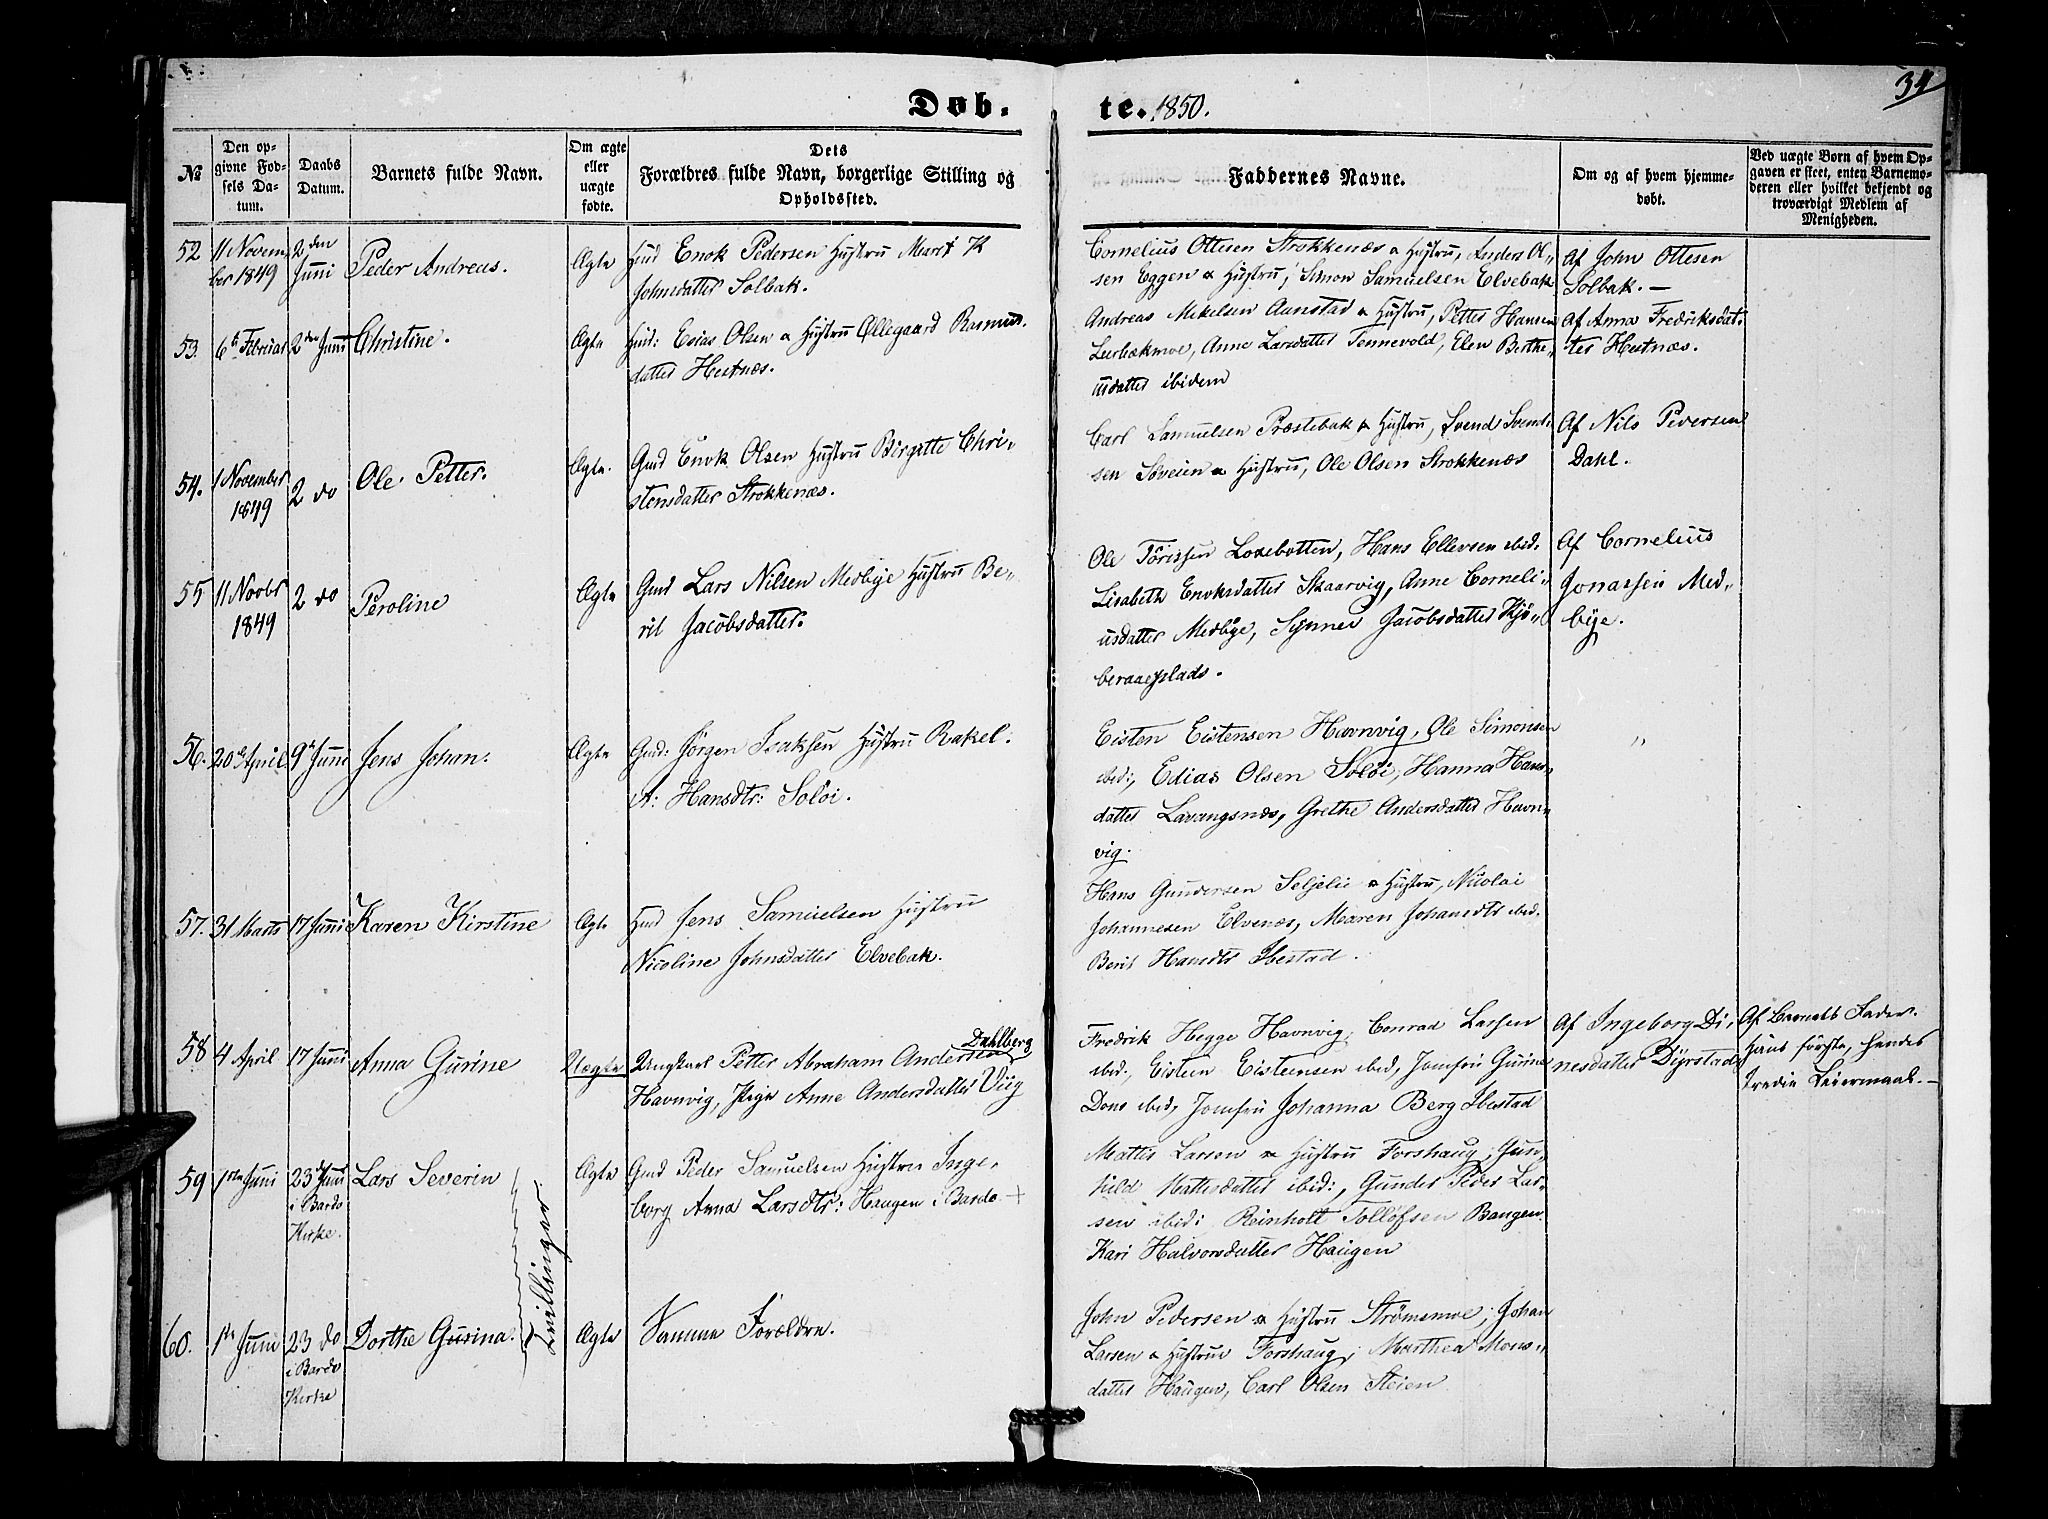 34
Døb.
te. 1850.
№
Den opgivne Fødsels Datum.
Daabs Datum.
Barnets fulde Navn.
Om ægte eller uægte fødte.
Dets Forældres fulde Navn, borgerlige Stilling og Opholdssted.
Faddernes Navne.
Om og af hvem hjemmedøbt.
Ved uægte Børn af hvem Opgaven er skeet, enten Barnemoderen eller hvilket bekjendt og troværdigt Medlem af Menigheden.
52
11 Novem
ber 1849
2den
Juni
Peder Andreas.
Ægte
Huud Enok Pedersen Hustru Marit K
Johnsdatter Solbak.
Cornelius Ottesen Strokkenæs & Hustru, Anders Ol„
sen Eggen & Hustru, Simon Samuelsen Elvebak
Af John Ottesen
Solbak. —
53.
6te Februar
2den Juni
Christine.
Ægte
Huud: Esias Olsen & Hustru Øllegaard Rasmus.
datter Hestnæs.
Andreas Mikelsen Aanstad & Hustru, Petter Hansen
Leerbækmoe, Anne Larsdatter Tennevold, Elen Berthe„
usdatter ibidem
Af Anna Fredriksdat„
ter Hestnæs.
54.
1 November
1849
2 do
Ole Petter.
Ægte.
Gmd Enok Olsen Hustru Birgitte Chri„
stensdatter Strokkenæs.
Carl Samuelsen Præstebak & Hustru, Svend Svend„
sen Søveien & Hustru, Ole Olsen Strokkenæs
Af Nils Pedersen
Dahl.
55
11 Novbr
1849
2 do
Peroline
Ægte
Gmd Lars Nilsen Medbye Hustru Be„
rit Jacobsdatter.
Ole Tørissen Loxebotten, Hans Ellevsen ibid.
Lisabeth Enoksdatter Skaarvig, Anne Corneli„
usdatter Medbye, Synnev Jacobsdatter Kjø„
beraaeplads.
Af Cornelius
Jonassen Med„
bye.
56.
20de April
9de Juni
Jens Johan.
Ægte
Gmd: Jørgen Isaksen Hustru Rakel.
A: Hansdtr: Soløi.
Eisten Eistensen Havnvig, Ole Simonsen
ibid:, Edias Olsen Soløi, Hanna Hans„
datter Lavangsnæs, Grethe Andersdatter Havn„
vig.
„
57.
31 Marts
17 Juni
Karen Kirstine
Ægte
Huud Jens Samuelsen Hustru
Nicoline Johnsdatter Elvebak.
Hans Gundersen Seljelie & Hustru, Nicolai
Johannesen Elvenæs, Maren Johansdtr ibid.
Berit Hansdtr Ibestad.
58
4 April
17 Juni
Anna Gurine
Uægte
Ungkarl Petter Abraham Andersen Dahlberg
Havnvig, Pige Anne Andersdatter Viig
Fredrik Hegge Havnvig, Conrad Larsen
ibid:, Eisten Eistensen ibid, Jomfru Gurine
Dons ibid, Jomfru Johanna Berg Ibestad
Af Ingeborg Di„
nesdatter Dyrstad
Af Barnets Fader.
Hans første, hendes
tredie Leiermaal. —
59
1ste Juni
23de Juni
i Bardo
Kirke.
Lars Severin
Tvillinger.
Ægte
Gmd Peder Samuelsen Hustru Inge„
borg Anna Larsdtr: Haugen i Bardo
Mattis Larsen & Hustru Forshaug, Gun„
hild Mattisdatter ibid:, Gunder Peder Lar„
sen ibid: Reinholt Tollefsen Bangen
Kari Halvorsdatter Haugen
60.
1ste Juni
23 do
i Bardo
Kirke
Dorthe Gurina.
Ægte
Samme Forældre.
John Pedersen & Hustru Strømsmoe, Johan
Larsen & Hustrue Forshaug, Marthea Mons„
datter Haugen, Carl Olsen Steien